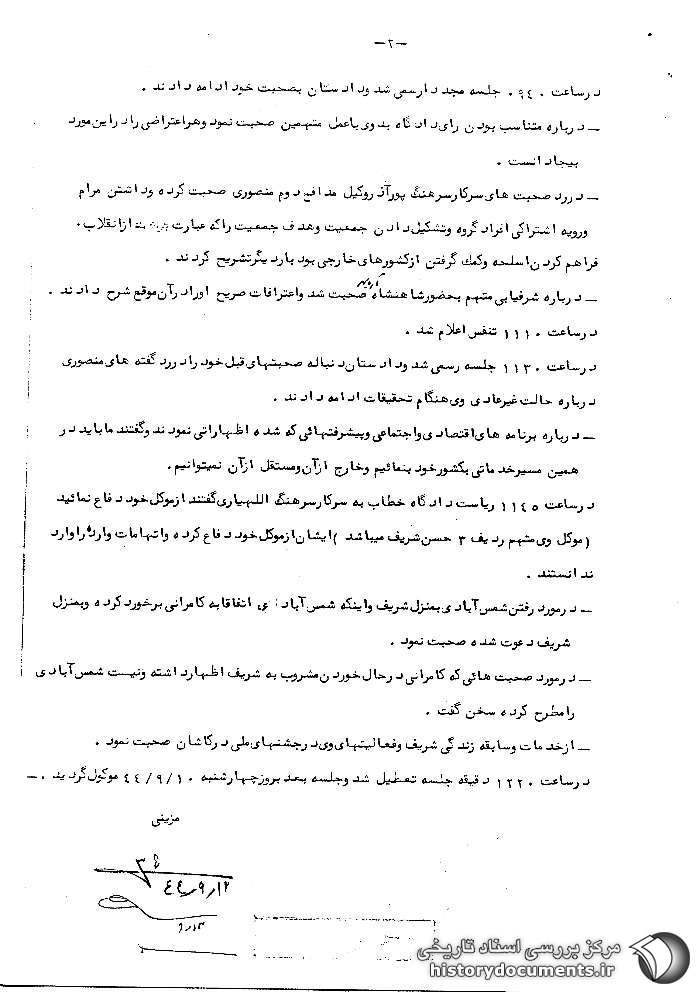 —۲—
درساعت ۹۴۰. جلسه مجدد ارسمی شد و دادستان بصحبت خود ادامه دادند .
— درباره متناسب بودن رای دادگاه بدوی باعمل متهمین صحبت نمود وهراعتراضی را دراین مورد
بیجا دانست .
— دررد صحبت های سرکارسرهنگ پورآذر وکیل مدافع دوم منصوری صحبت کرده وداشتن مرام
ورویه اشتراکی افراد گروه وتشکیل دادن جمعیت وهدف جمعیت راکه عبارت ازانقلاب،
فراهم کردن اسلحه وکمك گرفتن ازکشورهای خارجی بود باردیگر تشریح کردند .
— درباره شرفیابی متهم بحضورشاهنشاه آریامهر صحبت شد واعترافات صریح اورادرآن موقع شرح دادند .
درساعت ۱۱۱۰ تنفس اعلام شد .
درساعت ۱۱۳۰ جلسه رسمی شد و دادستان دنباله صحبتهای قبل خود را دررد گفته های منصوری
درباره حالت غیرعادی وی هنگام تحقیقات ادامه دادند .
— درباره برنامه های اقتصادی واجتماعی وپیشرفتهائی که شده اظهاراتی نمودند وگفتند ما باید در
همین مسیرخدماتی بکشورخود بنمائیم وخارج ازآن ومستقل ازآن نمیتوانیم.
درساعت ۱۱۴۵ ریاست دادگاه خطاب به سرکارسرهنگ اللهیاری گفتند ازموکل خود دفاع نمائید
(موکل وی متهم ردیف ۳ حسن شریف میباشد )ایشان ازموکل خود دفاع کرده واتهامات وارده را وارد
ندانستند .
— درمورد رفتن شمس آبادی بمنزل شریف واینکه شمس آبادی اتفاقا به کامرانی برخورد کرده وبمنزل
شریف دعوت شده صحبت نمود .
— درمورد صحبت هائی که کامرانی درحال خوردن مشروب به شریف اظهارداشته ونیت شمس آبادی
رامطرح کرده سخن گفت .
— ازخدمات وسابقه زندگی شریف وفعالیتهای وی درجشنهای ملی درکاشان صحبت نمود .
درساعت ۱۲۲۰ دقیقه جلسه تعطیل شد وجلسه بعد بروزچهارشنبه ۴۴/۹/۱۰ موکول گردید . —
مزینی
۴۴/۹/۱۲
مرکز بررسی اسناد تاریخی
historydocuments.ir